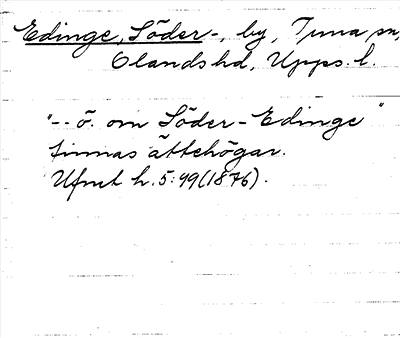 Edinge, Söder-, by, Tuna sn,
Olands hd, Upps. l.
"-- ö. om Söder-Edinge"
finnas ättehögar.
Ufmt h. 5: 99 (1876).